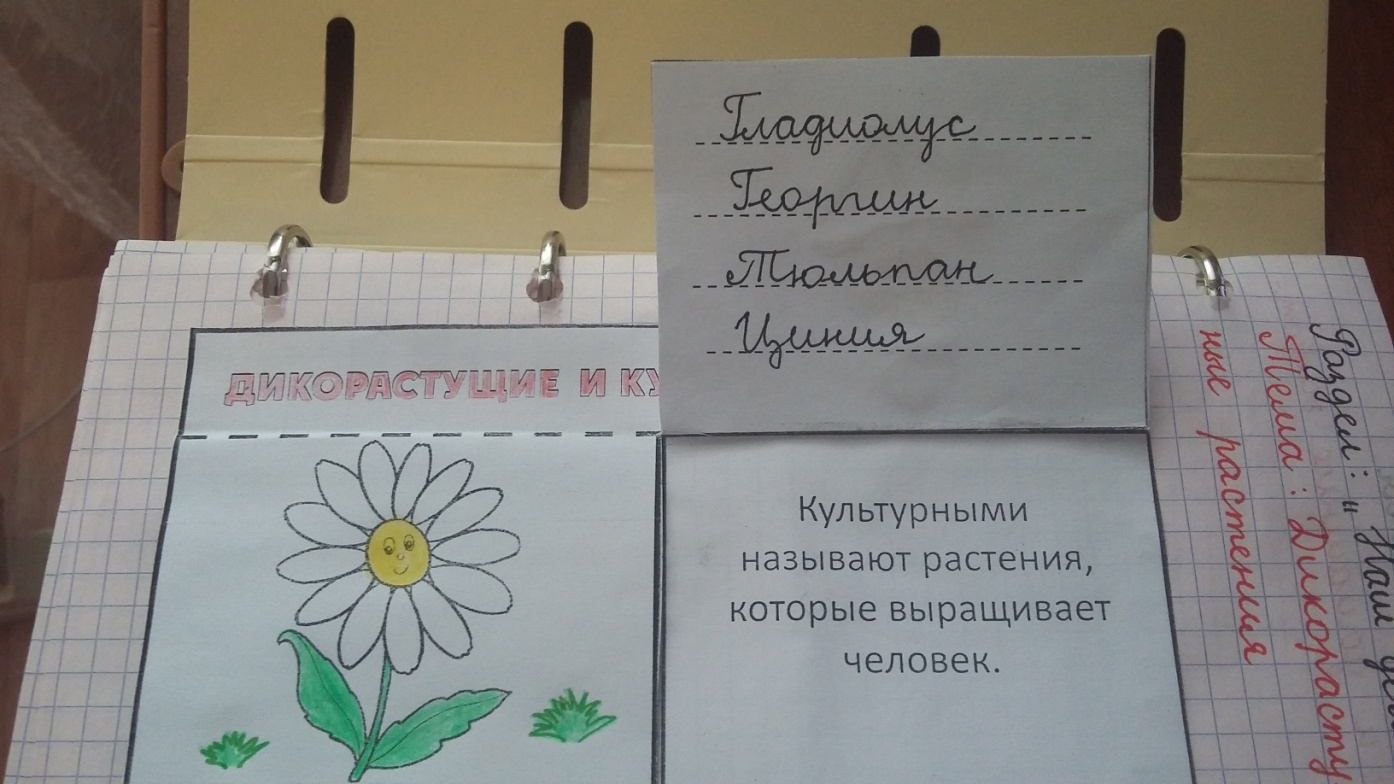 Гладиолус
Георгин
Тюльпан
Циния
ДИКОРАСТУЩИЕ И КУ
Культурными
называют растения,
которые выращивает
человек.
Раздел: "Наш
Тема: Дикорасту
ные растения